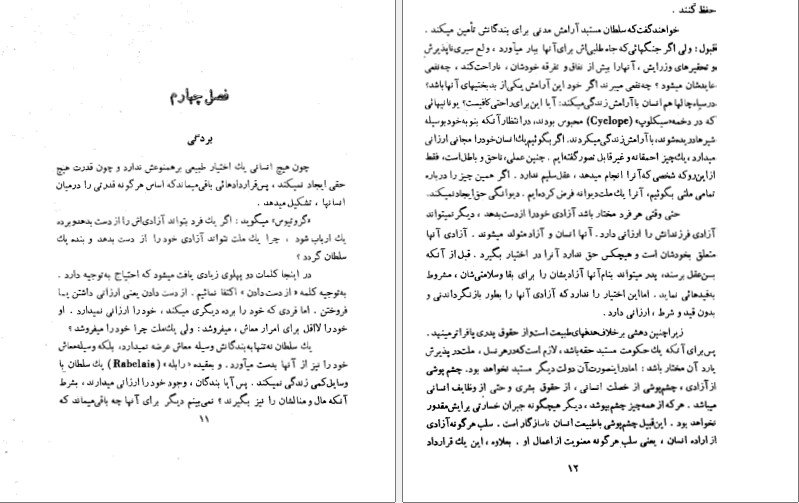 فصل چهارم
بردگی
چون هیچ انسانی یك اختیار طبیعی برهمنوعش ندارد و چون قدرت هیچ
حقی ایجاد نمیکند ، پس قراردادهائی باقی میماند که اساس هرگونه قدرتی را درمیان
انسانها ، تشکیل میدهد .
«گروتیوس» میگوید : اگر یك فرد بتواند آزادی‌اش را از دست بدهد و برده
یك ارباب شود ، چرا یك ملت نتواند آزادی خود را از دست بدهد و بنده یك
سلطان گردد ؟
در اینجا کلمات دو پهلوی زیادی یافت میشود که احتیاج به توجیه دارد .
به توجیه کلمه « از دست دادن » اکتفا نمائیم . از دست دادن یعنی ارزانی داشتن یا
فروختن . اما فردی که خود را برده دیگری میکند ، خود را ارزانی نمیدارد . او
خود را لااقل برای امرار معاش ، میفروشد : ولی یك ملت چرا خود را میفروشد ؟
یك سلطان نه تنها به بندگانش وسیله معاش عرضه نمیدارد، بلکه وسیله معاش
خود را نیز از آنها بدست میآورد . و بعقیده «رابله» (Rabelais) یك سلطان با
وسایل کمی زندگی نمیکند . پس آیا بندگان ، وجود خود را ارزانی میدارند، بشرط
آنکه مال و منالشان را نیز بگیرند ؟ نمی‌بینم دیگر برای آنها چه باقی میماند که
۱۱
حفظ کنند .
خواهند گفت که سلطان مستبد آرامش مدنی برای بندگانش تأمین میکند .
قبول : ولی اگر جنگهائی که جاه طلبی‌اش برای آنها ببار میآورد ، ولع سیری ناپذیرش
و تحقیرهای وزرایش ، آنها را بیش از نفاق و تفرقه خودشان ، ناراحت کند ، چه نفعی
عایدشان میشود ؟ چه نفعی میبرند اگر خود این آرامش یکی از بدبختیهای آنها باشد؟
در سیاه چالها هم انسان با آرامش زندگی میکند: آیا این برای راحتی کافیست؟ یونانیهائی
که در دخمه «سیکلوپ» (Cyclope) محبوس بودند، در انتظار آنکه بنوبه خود بوسیله
شیرها دریده شوند، با آرامش زندگی میکردند. اگر بگوئیم یك انسان خود را مجانی ارزانی
میدارد ، یك چیز احمقانه و غیر قابل تصور گفته‌ایم . چنین عملی، ناحق و باطل است، فقط
از این رو که شخصی که آنرا انجام میدهد ، عقل سلیم ندارد . اگر همین چیز را درباره
تمامی ملتی بگوئیم، آنرا یك ملت دیوانه فرض کرده‌ایم . دیوانگی حق ایجاد نمیکند.
حتی وقتی هر فرد مختار باشد آزادی خود را از دست بدهد ، دیگر نمیتواند
آزادی فرزندانش را ارزانی دارد. آنها انسان و آزاد متولد میشوند . آزادی آنها
متعلق بخودشان است و هیچکس حق ندارد آنرا در اختیار بگیرد . قبل از آنکه
بسن عقل برسند، پدر میتواند بنام آنها آزادیشان را برای بقا و سلامتی‌شان ، مشروط
به قیدهائی نماید . اما این اختیار را ندارد که آزادی آنها را بطور بازنگرداندنی و
بدون قید و شرط ، ارزانی دارد .
زیرا چنین دهشی برخلاف هدفهای طبیعت است و از حقوق پدری پا فراتر مینهد.
پس برای آنکه یك حکومت مستبد حقه باشد، لازم است که در هر نسل ، ملت در پذیرش
یا رد آن مختار باشد : اما در اینصورت آن دولت دیگر مستبد نخواهد بود. چشم پوشی
از آزادی ، چشم پوشی از خصلت انسانی ، از حقوق بشری و حتی از وظایف انسانی
میباشد . هرکه از همه چیز چشم بپوشد ، دیگر هیچگونه جبران خسارتی برایش مقدور
نخواهد بود . این قبیل چشم پوشی با طبیعت انسان ناسازگار است . سلب هرگونه آزادی
از اراده انسان ، یعنی سلب هرگونه معنویت از اعمال او . بعلاوه ، این یك قرارداد
۱۲